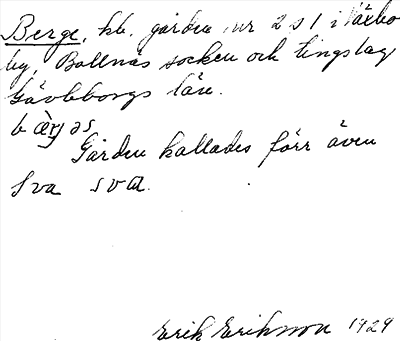 Berge, hb. gården nr 2 o 1 i Växbo
by, Bollnäs socken och tingslag
Gävleborgs län.
Gården kallades förr även
Sva sva.
Erik Eriksson 1929